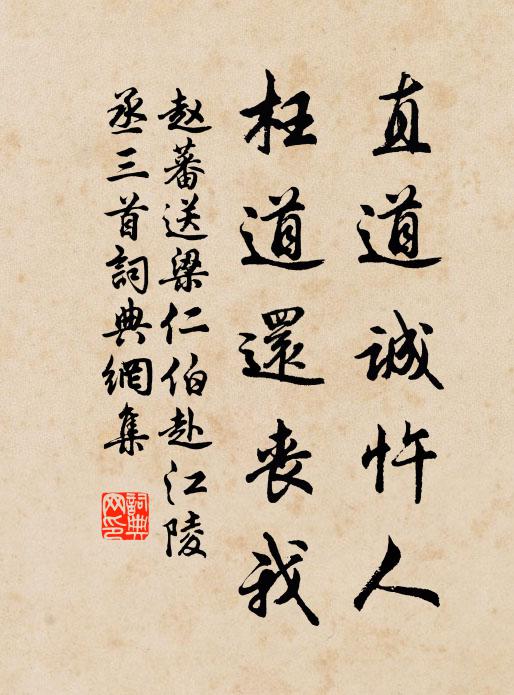 直道誠忤人
枉道還喪我
赵蕃送梁仁伯赴江陵
丞三首詞典網集
詞典
网印